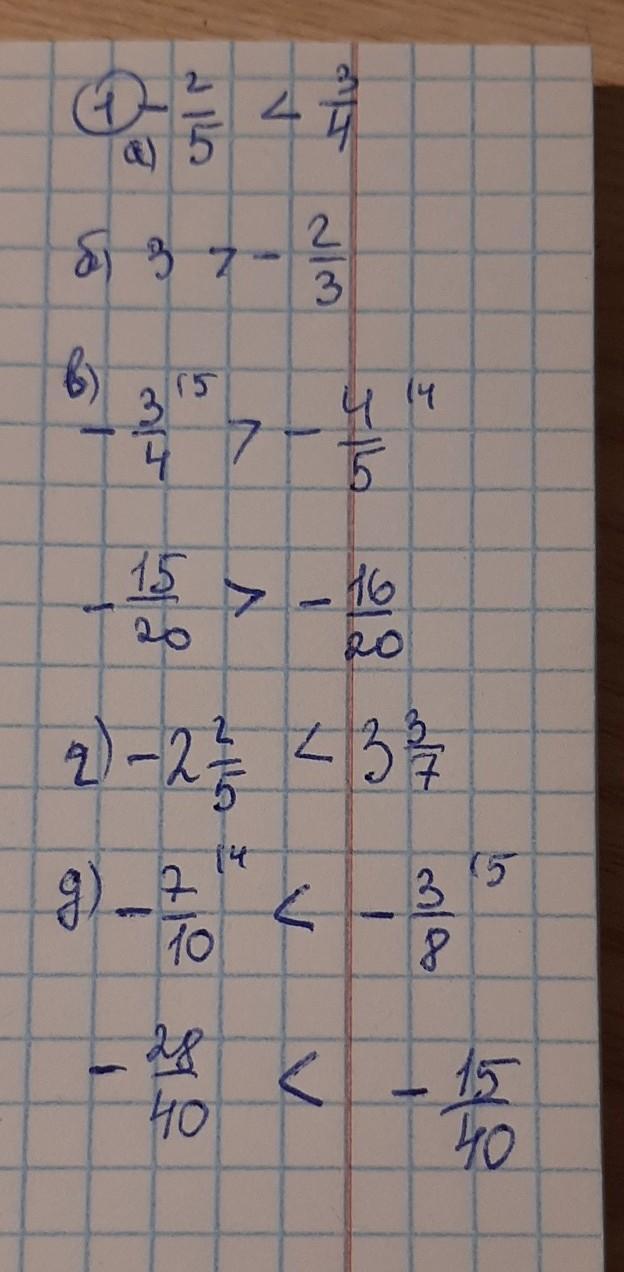 ① - 2/5 < 3/4
а)
б) 3 > - 2/3
в) - 3/4 (5 > - 4/5 (4
- 15/20 > - 16/20
г) - 2 2/5 < 3 3/7
д) - 7/10 (4 < - 3/8 (5
- 28/40 < - 15/40